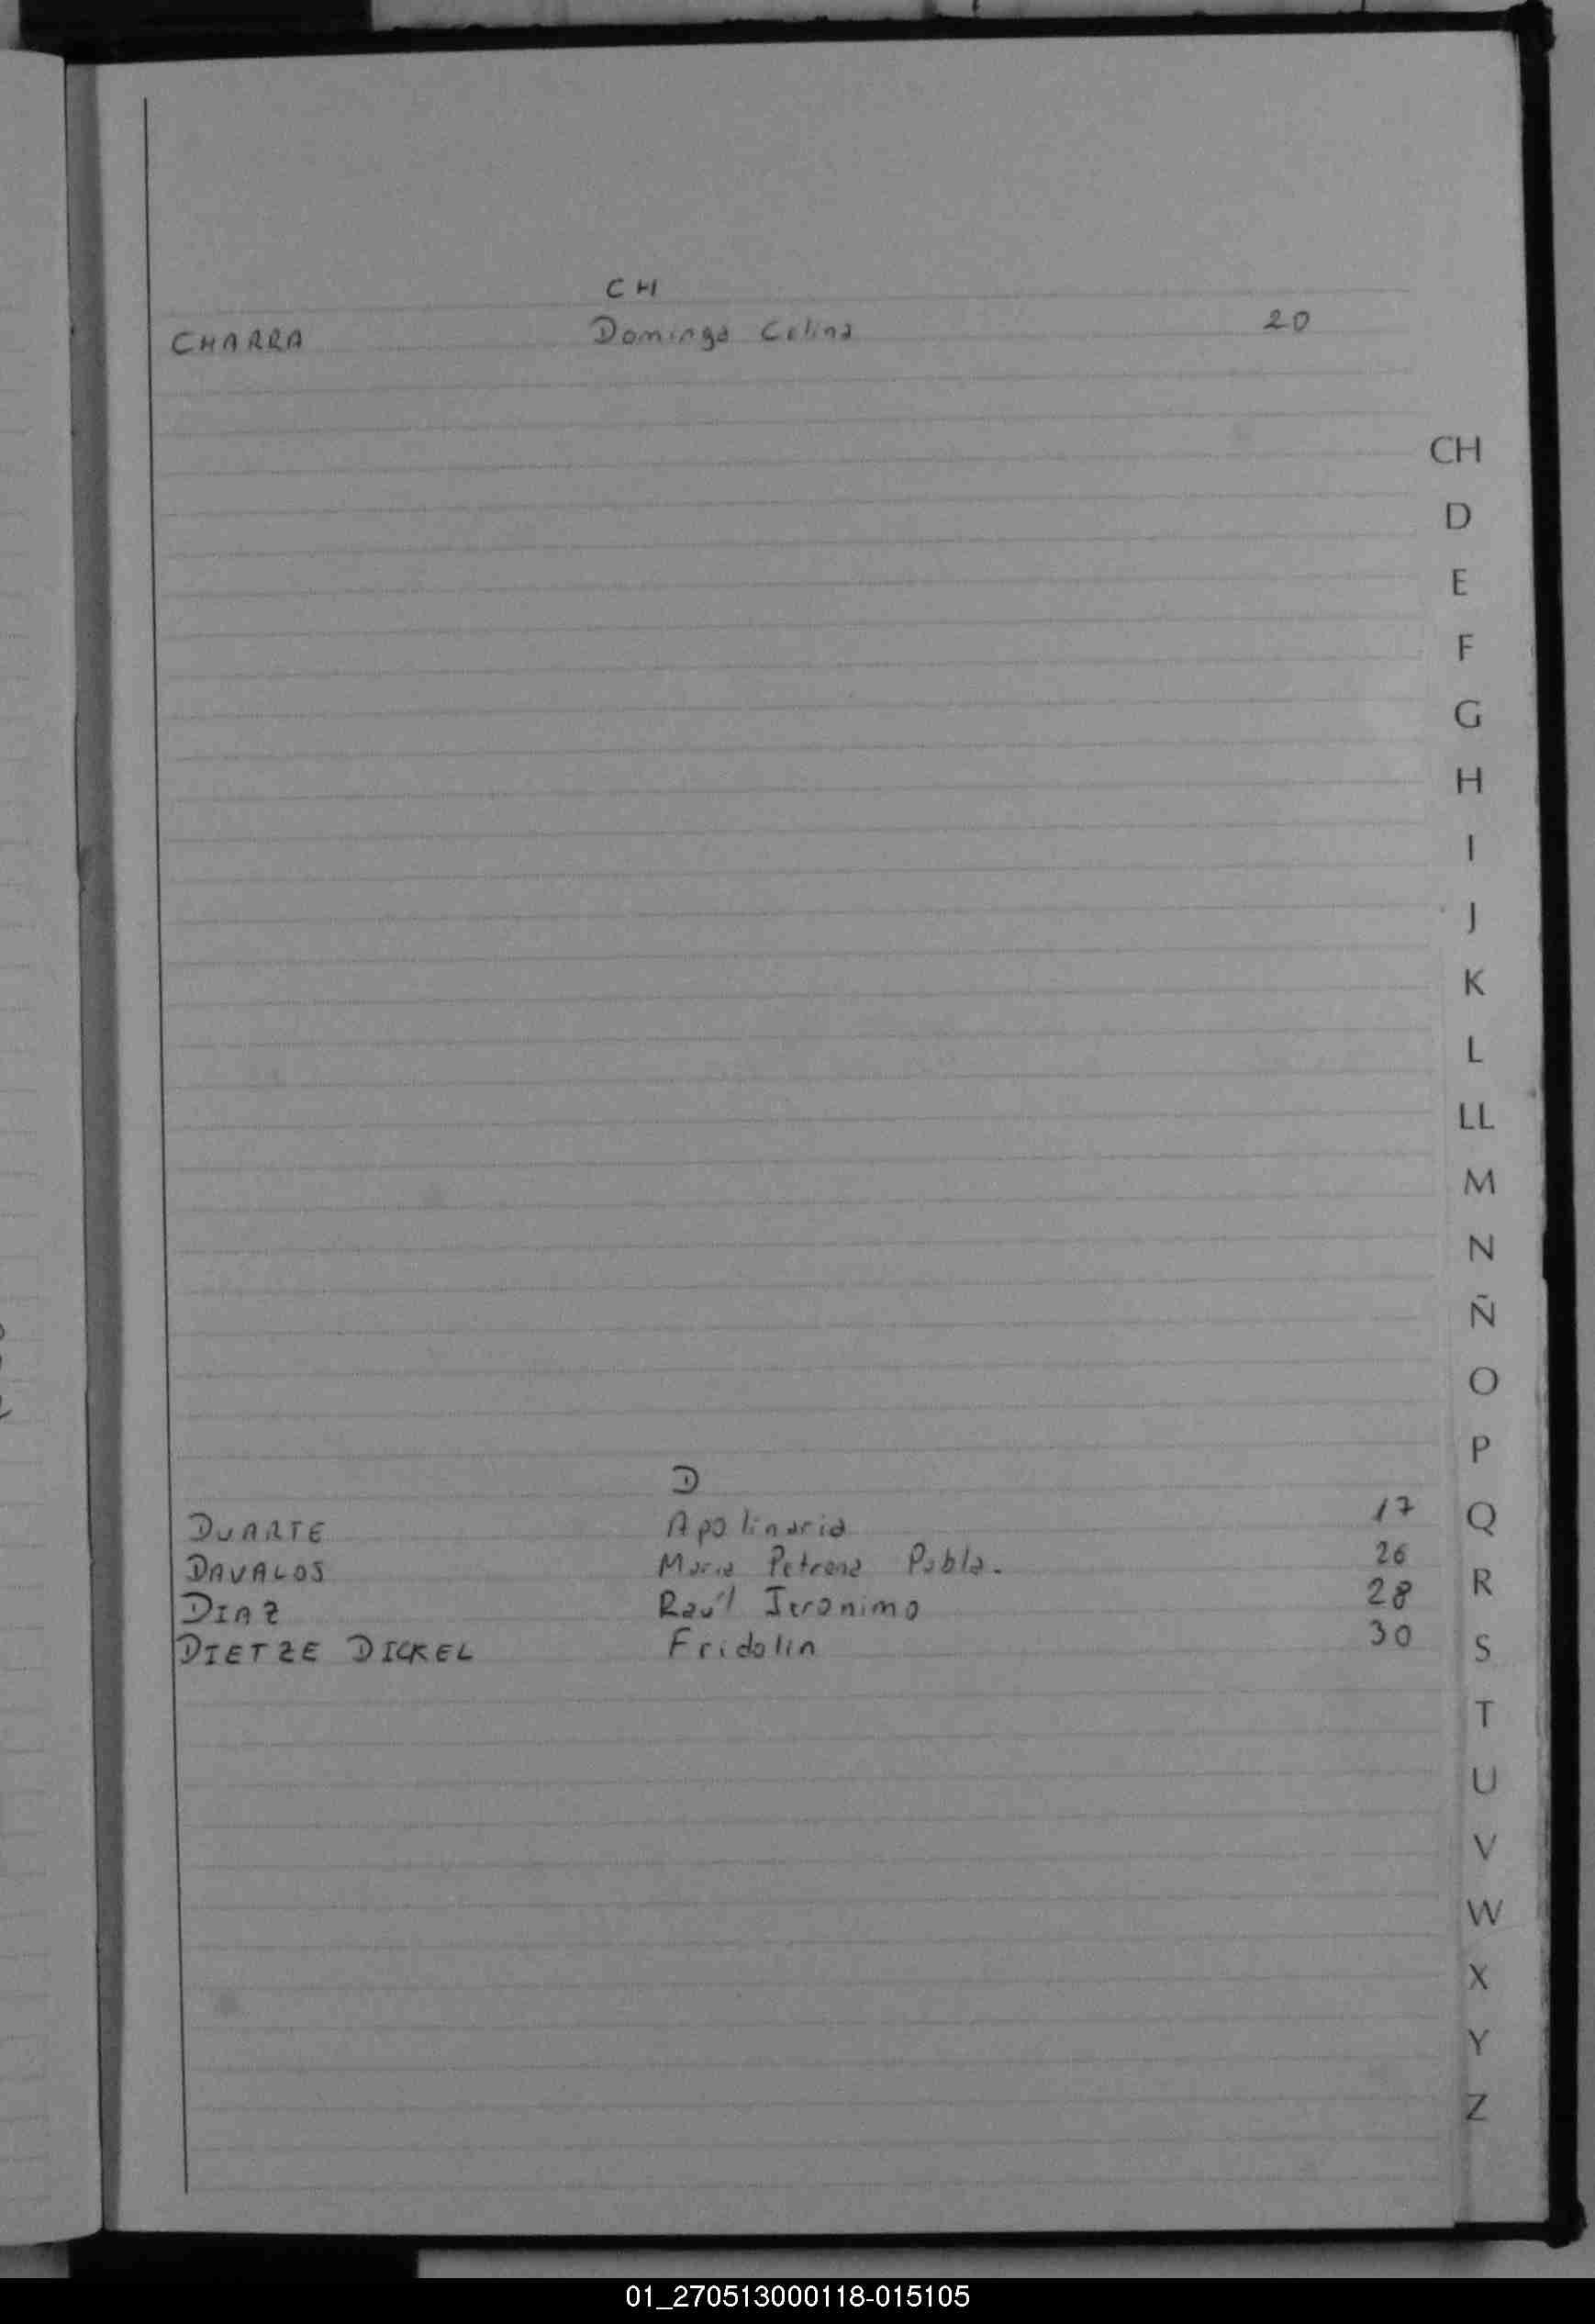 CH
CHARRA Dominga Celina 20
CH
D
E
F
G
H
I
J
K
L
LL
M
N
Ñ
O
P
Q
R
S
T
U
V
W
X
Y
Z
D
DUARTE Apolinaria 17
DAVALOS Maria Petrona Pabla. 26
DIAZ Raúl Jeronimo 28
DIETZE DICKEL Fridolin 30
01_270513000118-015105